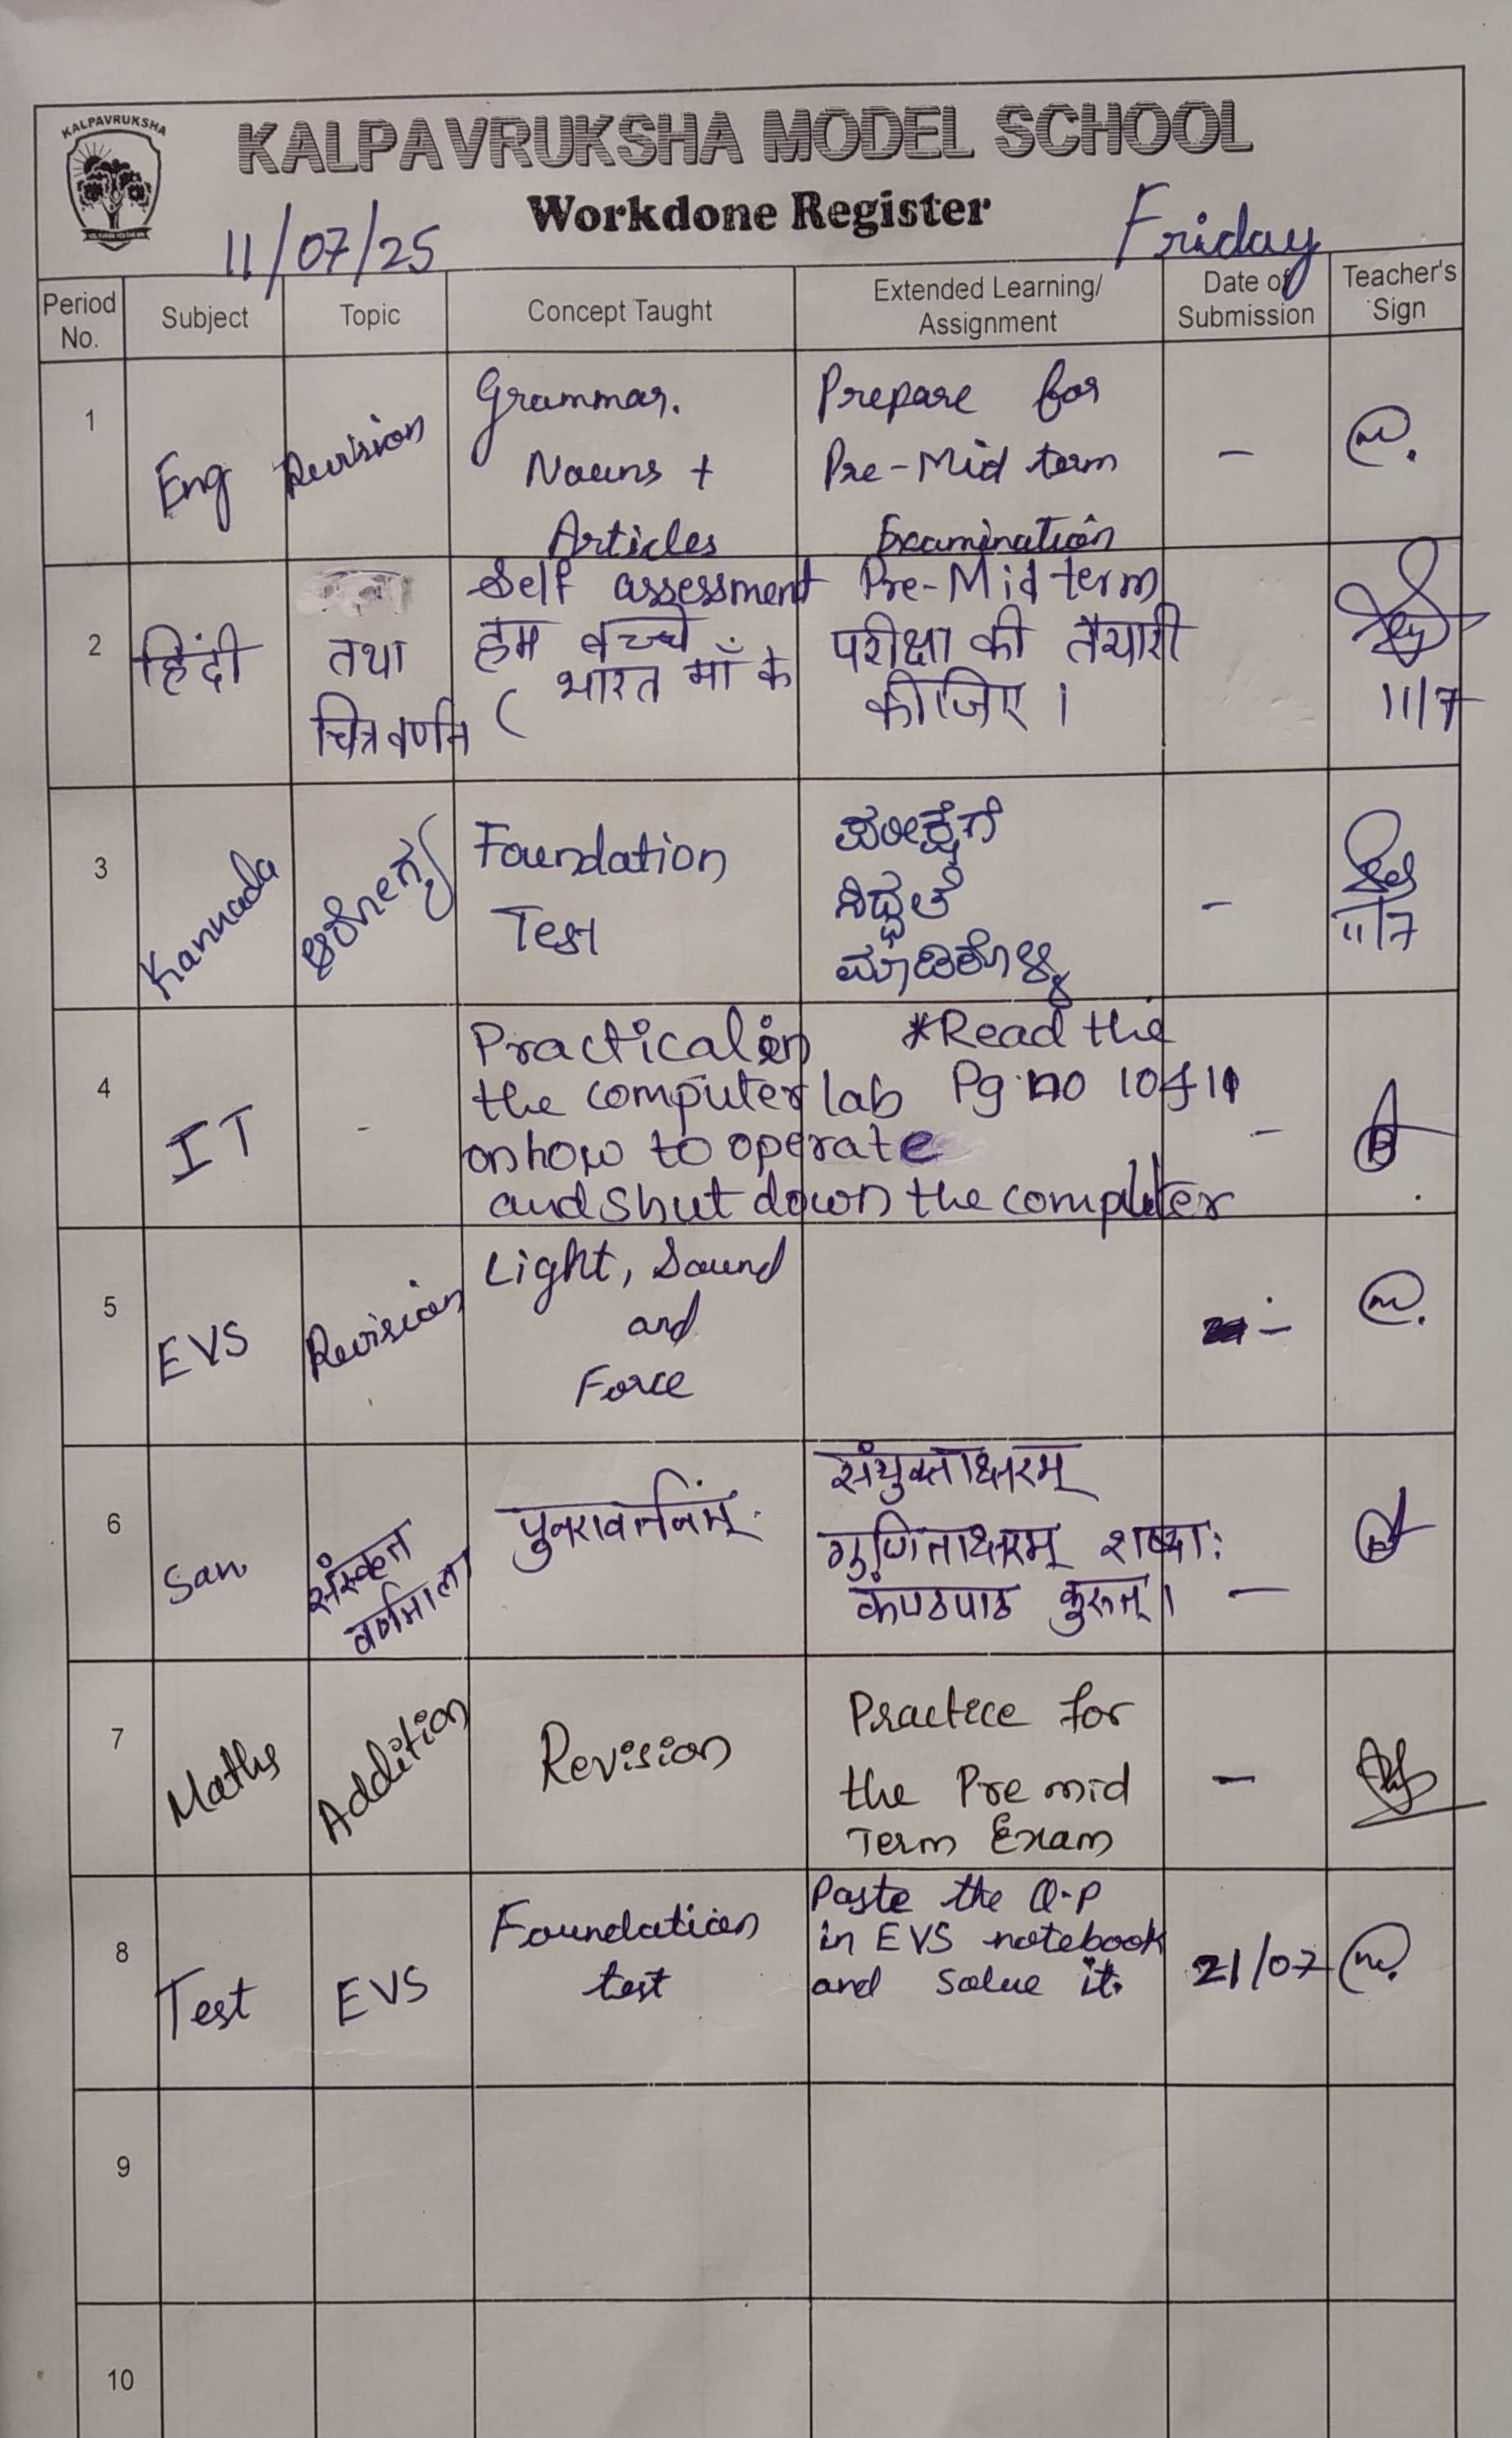 KALPAVRUKSHA
KALPAVRUKSHA MODEL SCHOOL
Workdone Register
11/07/25
Friday
Period No.
Subject
Topic
Concept Taught
Extended Learning/
Assignment
Date of
Submission
Teacher's
Sign
1
Eng
Revision
Grammar.
Nouns +
Articles
Prepare for
Pre-Mid term
Examination
-
2
हिंदी
तथा
चित्र वर्णन
Self assessment
हम बच्चे
( भारत माँ के
Pre-Mid term
परीक्षा की तैयारी
कीजिए।
11/7
3
Kannada
ಆರೋಗ್ಯ
Foundation
Test
ಪರೀಕ್ಷೆಗೆ
ಸಿದ್ಧತೆ
ಮಾಡಿಕೊಳ್ಳಿ
-
11/7
4
IT
-
Practical in
the computer lab
on how to operate
and shut down the computer
*Read the
Pg no 10 & 11
-
5
EVS
Revision
Light, Sound
and
Force
-
6
San
संस्कृत
वर्णमाला
पुनरावर्तनंम्.
संयुक्ताक्षरम्
गुणिताक्षरम् शब्दाः
कंण्ठपाठ कुरुत्।
-
7
Maths
Addition
Revision
Practice for
the Pre mid
Term Exam
-
8
Test
EVS
Foundation
test
Paste the Q.P
in EVS notebook
and solve it.
21/07
9
10